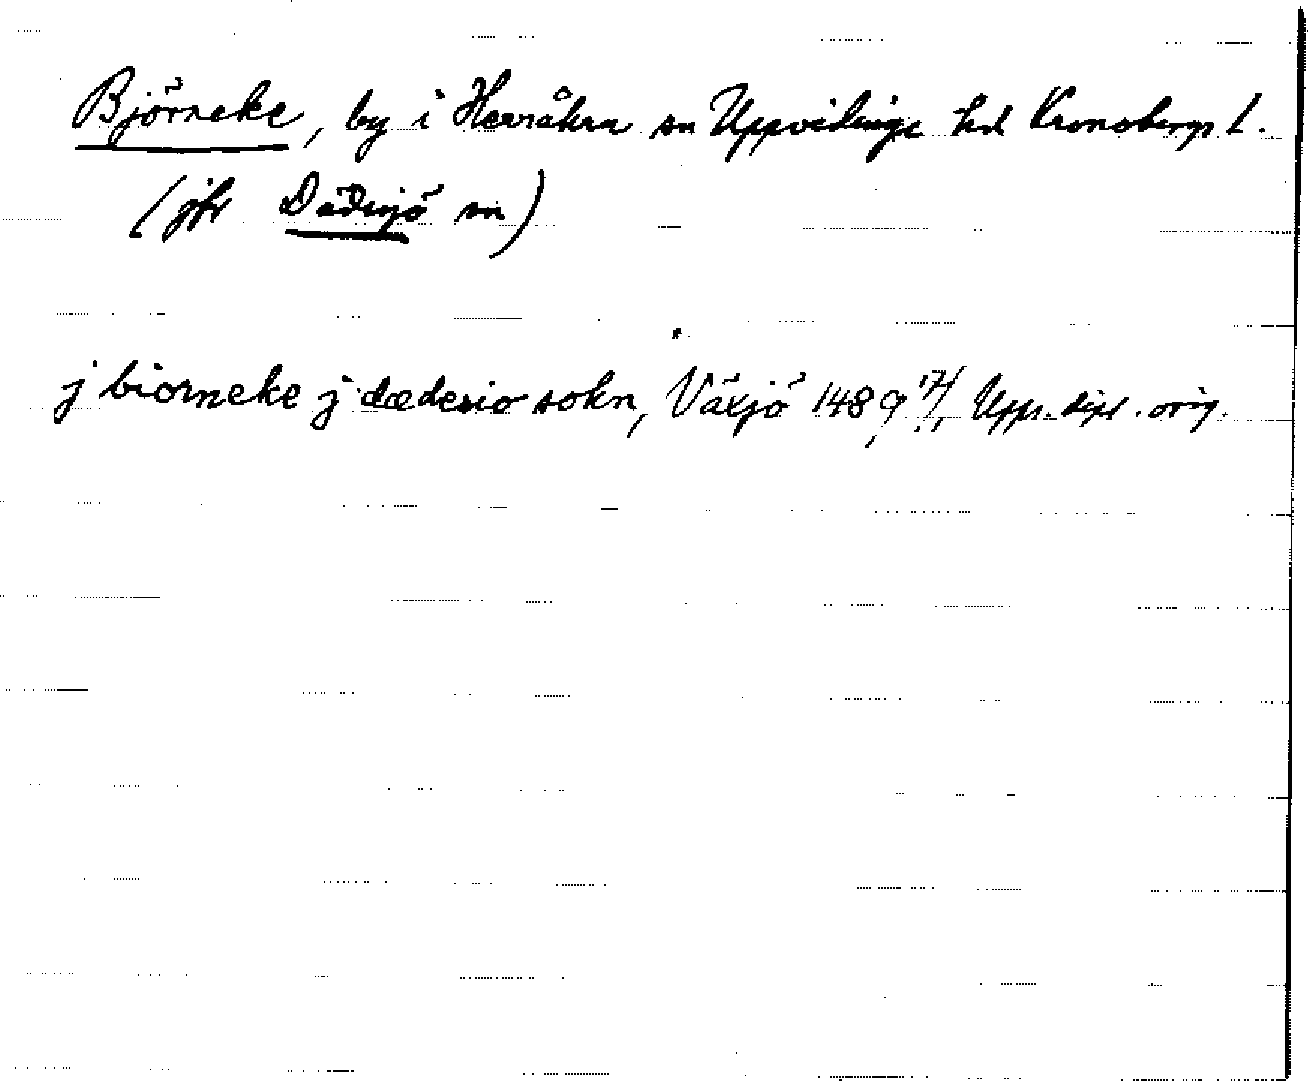 Björneke, by i Herråkra sn Uppvidinge hd Kronobergs l.
(jfr Dädesjö sn)
j biorneke j dædesio sokn, Växjö 1489 Upps. dipl. orig.